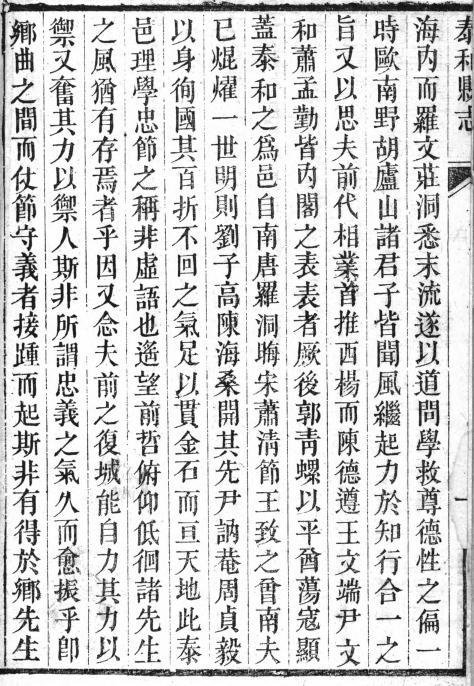 泰和縣志
一
海內而羅文莊洞悉末流遂以道問學救尊德性之偏一
時歐南野胡廬山諸君子皆聞風繼起力於知行合一之
旨又以思夫前代相業首推西楊而陳德遵王文端尹文
和蕭孟勤皆內閣之表表者厥後郭靑螺以平酋蕩寇顯
蓋泰和之爲邑自南唐羅洞晦宋蕭淸節王致之曾南夫
已焜燿一世明則劉子高陳海桑開其先尹訥菴周貞毅
以身徇國其百折不回之氣足以貫金石而亘天地此泰
邑理學忠節之稱非虛語也遙望前哲俯仰低徊諸先生
之風猶有存焉者乎因又念夫前之復城能自力其力以
禦又奮其力以禦人斯非所謂忠義之氣久而愈振乎卽
鄉曲之間而仗節守義者接踵而起斯非有得於鄉先生